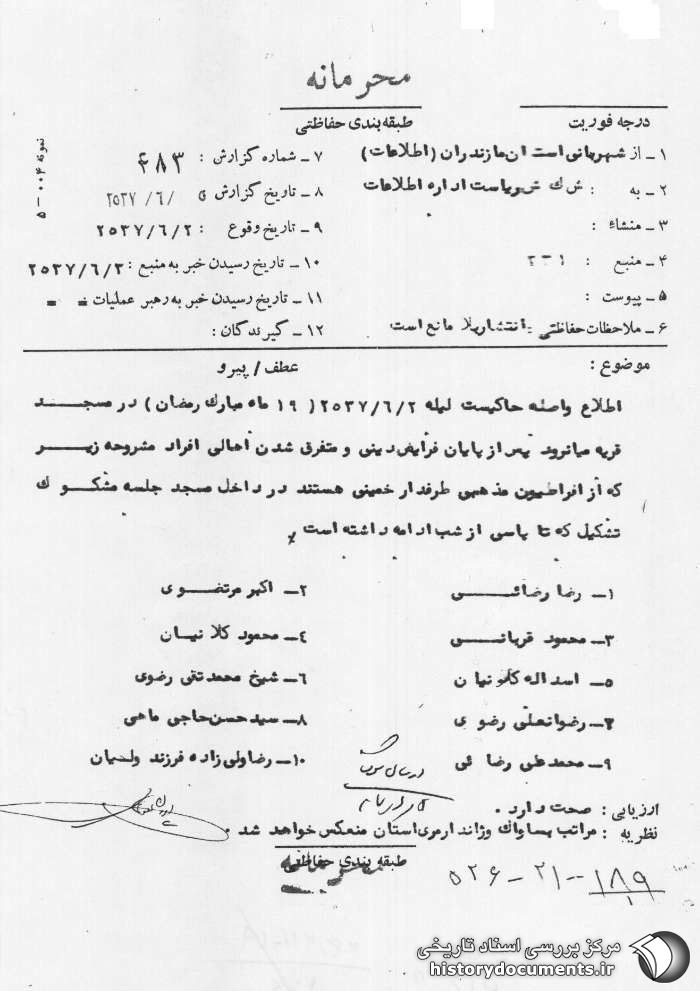 محرمانه
درجه فوریت
طبقه بندی حفاظتی
۱ـ از شهربانی استان مازندران (اطلاعات)
۷ـ شماره گزارش : ۴۸۳
۲ـ به : ش ک ش ریاست اداره اطلاعات
۸ـ تاریخ گزارش ۲۵۳۷/۶/
۳ـ منشاء :
۹ـ تاریخ وقوع : ۲۵۳۷/۶/۲
۴ـ منبع :
۱۰ـ تاریخ رسیدن خبر به منبع : ۲۵۳۷/۶/۲
۵ـ پیوست :
۱۱ـ تاریخ رسیدن خبر به رهبر عملیات
۶ـ ملاحظات حفاظتی : انتشار بلا مانع است
۱۲ـ گیرندگان :
نمونه ۰۰۴ – ۵
موضوع :
عطف / پیرو
اطلاع واصله حاکیست لیله ۲۵۳۷/۶/۲ (۱۹ ماه مبارک رمضان) در مسجد
قریه میانرود پس از پایان فرایض دینی و متفرق شدن اهالی افراد مشروحه زیر
که از افراطیون مذهبی طرفدار خمینی هستند در داخل مسجد جلسه مشکوک
تشکیل که تا پاسی از شب ادامه داشته است
۱ـ رضا رضائی
۲ـ اکبر مرتضوی
۳ـ محمود قربانی
۴ـ محمود کلانیان
۵ـ اسداله کلانیان
۶ـ شیخ محمدتقی رضوی
رضوانعلی رضوی
۸ـ سیدحسن حاجی ماهی
۹ـ محمدعلی رضائی
۱۰ـ رضا ولی زاده فرزند ولیمان
ارزیابی : صحت دارد .
نظریه : مراتب بساواک وژاندارمری استان منعکس خواهد شد .
طبقه بندی حفاظتی
محرمانه
۵۲۶–۲۱–۱۸۹
مرکز بررسی اسناد تاریخی
historydocuments.ir